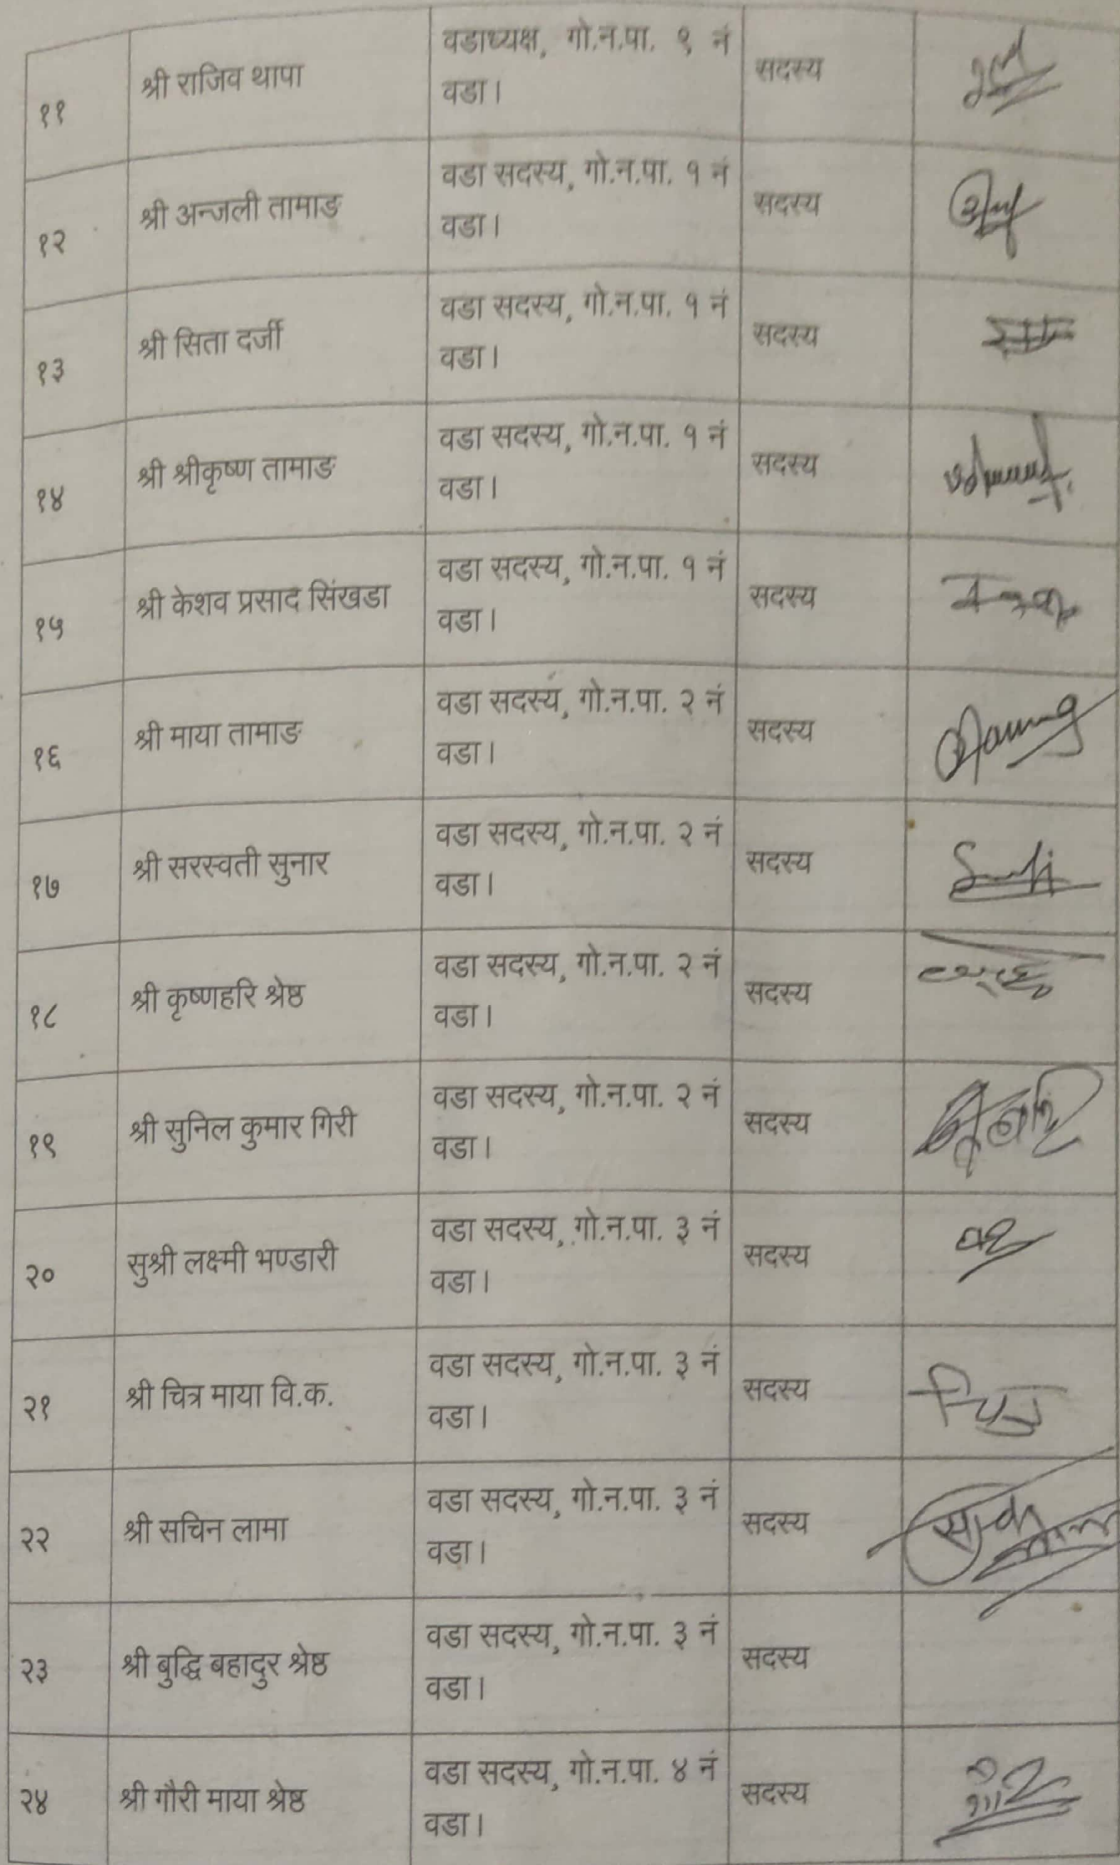 ११ श्री राजिव थापा वडाध्यक्ष, गो.न.पा. ९ नं सदस्य
वडा।
१२ श्री अन्जली तामाङ वडा सदस्य, गो.न.पा. १ नं सदस्य
वडा।
१३ श्री सिता दर्जी वडा सदस्य, गो.न.पा. १ नं सदस्य
वडा।
१४ श्री श्रीकृष्ण तामाङ वडा सदस्य, गो.न.पा. १ नं सदस्य
वडा।
१५ श्री केशव प्रसाद सिंखडा वडा सदस्य, गो.न.पा. १ नं सदस्य
वडा।
१६ श्री माया तामाङ वडा सदस्य, गो.न.पा. २ नं सदस्य
वडा।
१७ श्री सरस्वती सुनार वडा सदस्य, गो.न.पा. २ नं सदस्य
वडा।
१८ श्री कृष्णहरि श्रेष्ठ वडा सदस्य, गो.न.पा. २ नं सदस्य
वडा।
१९ श्री सुनिल कुमार गिरी वडा सदस्य, गो.न.पा. २ नं सदस्य
वडा।
२० सुश्री लक्ष्मी भण्डारी वडा सदस्य, गो.न.पा. ३ नं सदस्य
वडा।
२१ श्री चित्र माया वि.क. वडा सदस्य, गो.न.पा. ३ नं सदस्य
वडा।
२२ श्री सचिन लामा वडा सदस्य, गो.न.पा. ३ नं सदस्य
वडा।
२३ श्री बुद्धि बहादुर श्रेष्ठ वडा सदस्य, गो.न.पा. ३ नं सदस्य
वडा।
२४ श्री गौरी माया श्रेष्ठ वडा सदस्य, गो.न.पा. ४ नं सदस्य
वडा।